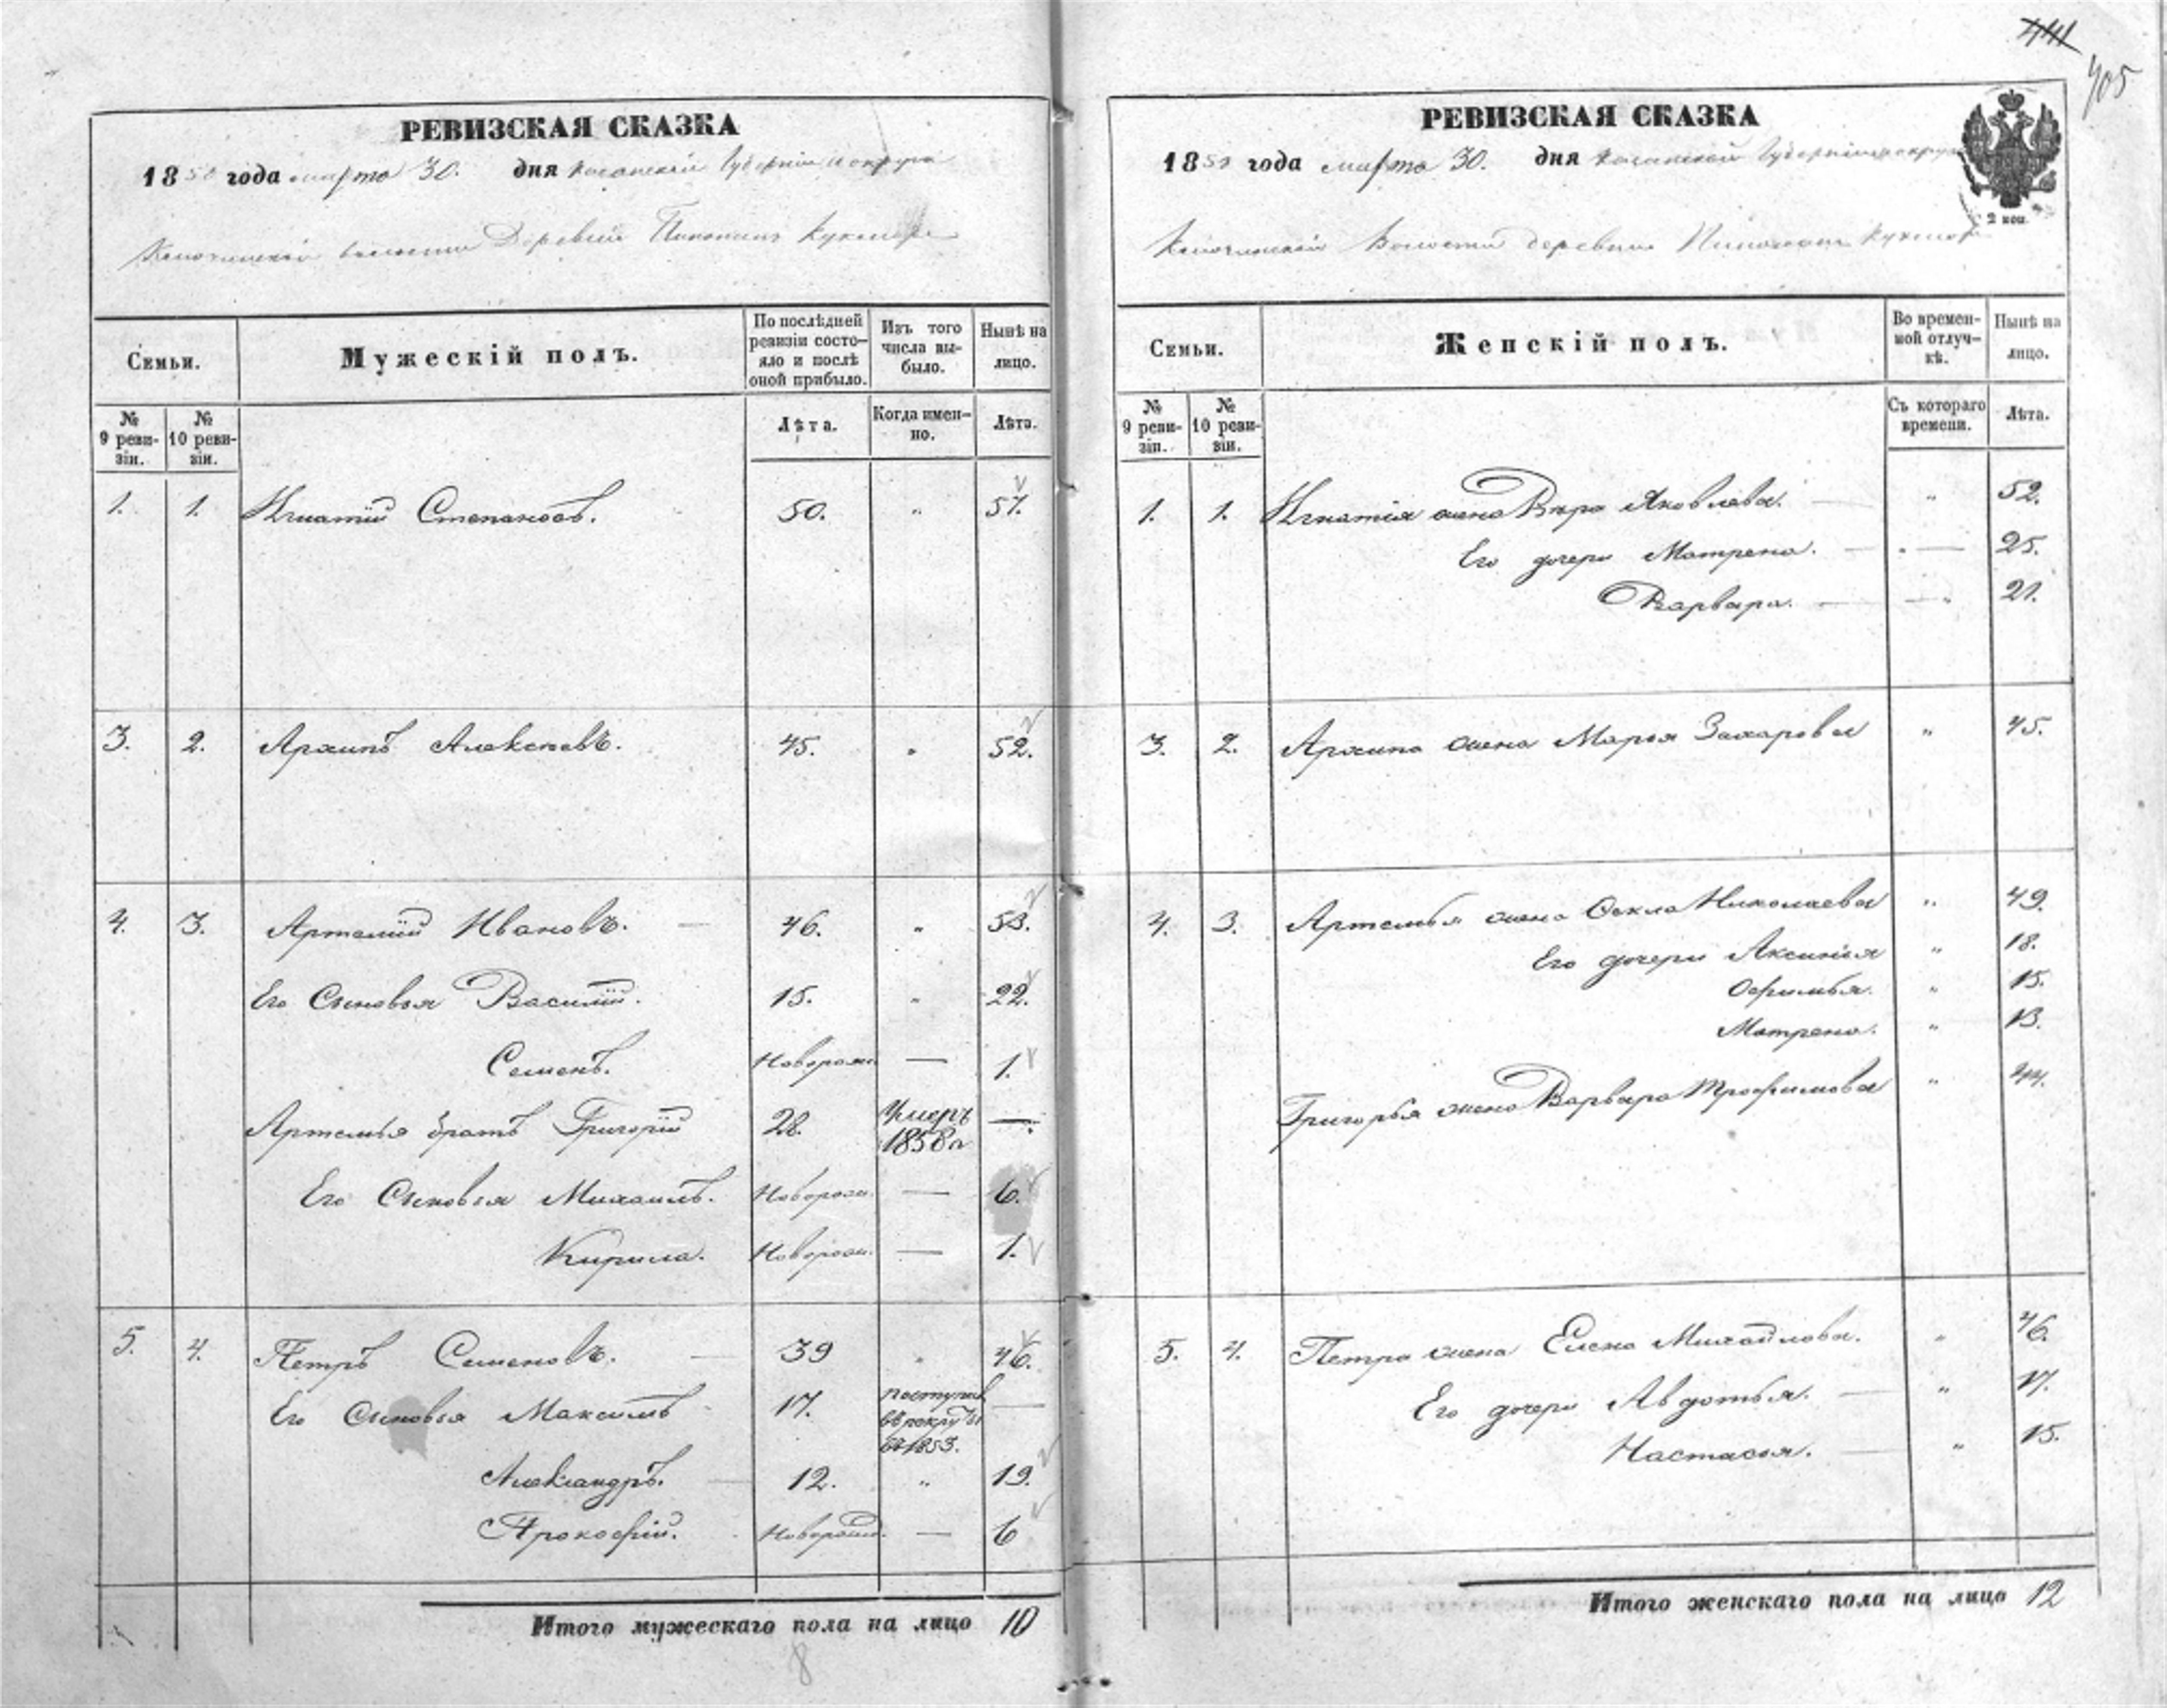 441
405
РЕВИЗСКАЯ СКАЗКА
1858 года марта 30. дня Казанской Губернии и округа
волости Деревни Починка Кукмора
Семьи.
Мужескій полъ.
По послѣдней ревизіи состо-
яло и послѣ
оной прибыло.
Изъ того
числа вы-
было.
Нынѣ на
лицо.
№
9 реви-
зіи.
№
10 реви-
зіи.
Лѣта.
Когда имен-
но.
Лѣта.
1. 1. Игнатій Степановъ. 50. " 57.
3. 2. Архипъ Алексѣевъ. 45. " 52.
4. 3. Артемій Ивановъ. — 46. " 53.
Его Сыновья Василій. 15. " 22.
Семенъ. Новорож. — 1.
Артемья братъ Григорій 28. Умеръ 1858 г. —.
Его Сыновья Михаилъ. Новорож. — 6.
Кирила. Новорож. — 1.
5. 4. Петръ Семеновъ. — 39 " 46.
Его Сыновья Максимъ 17. поступив —
въ рекруты
въ 1853.
Александръ. — 12. " 19.
Прокофій. Новорожд. — 6
Итого мужескаго пола на лицо 10
8
РЕВИЗСКАЯ СКАЗКА
1858 года марта 30. дня Казанской Губерніи и округа
2 коп.
Волости деревни Кукмор
Семьи.
Женскій полъ.
Во времен-
ной отлуч-
кѣ.
Нынѣ на
лицо.
№
9 реви-
зіи.
№
10 реви-
зіи.
Съ котораго
времени.
Лѣта.
1. 1. Игнатія жена Вѣра Яковлева. — " 52.
Его дочери Матрена. — " — 25.
Варвара. — — " 21.
3. 2. Архипа жена Марья Захарова " 45.
4. 3. Артемья жена Ѳекла Николаева " 49.
Его дочери Аксинія " 18.
Офимья. " 15.
Матрена. " 13.
Григорья жена Варвара Трофимова " 44.
5. 4. Петра жена Елена Михайлова. " 46.
Его дочери Авдотья. — " 17.
Настасья. — " 15.
Итого женскаго пола на лицо 12